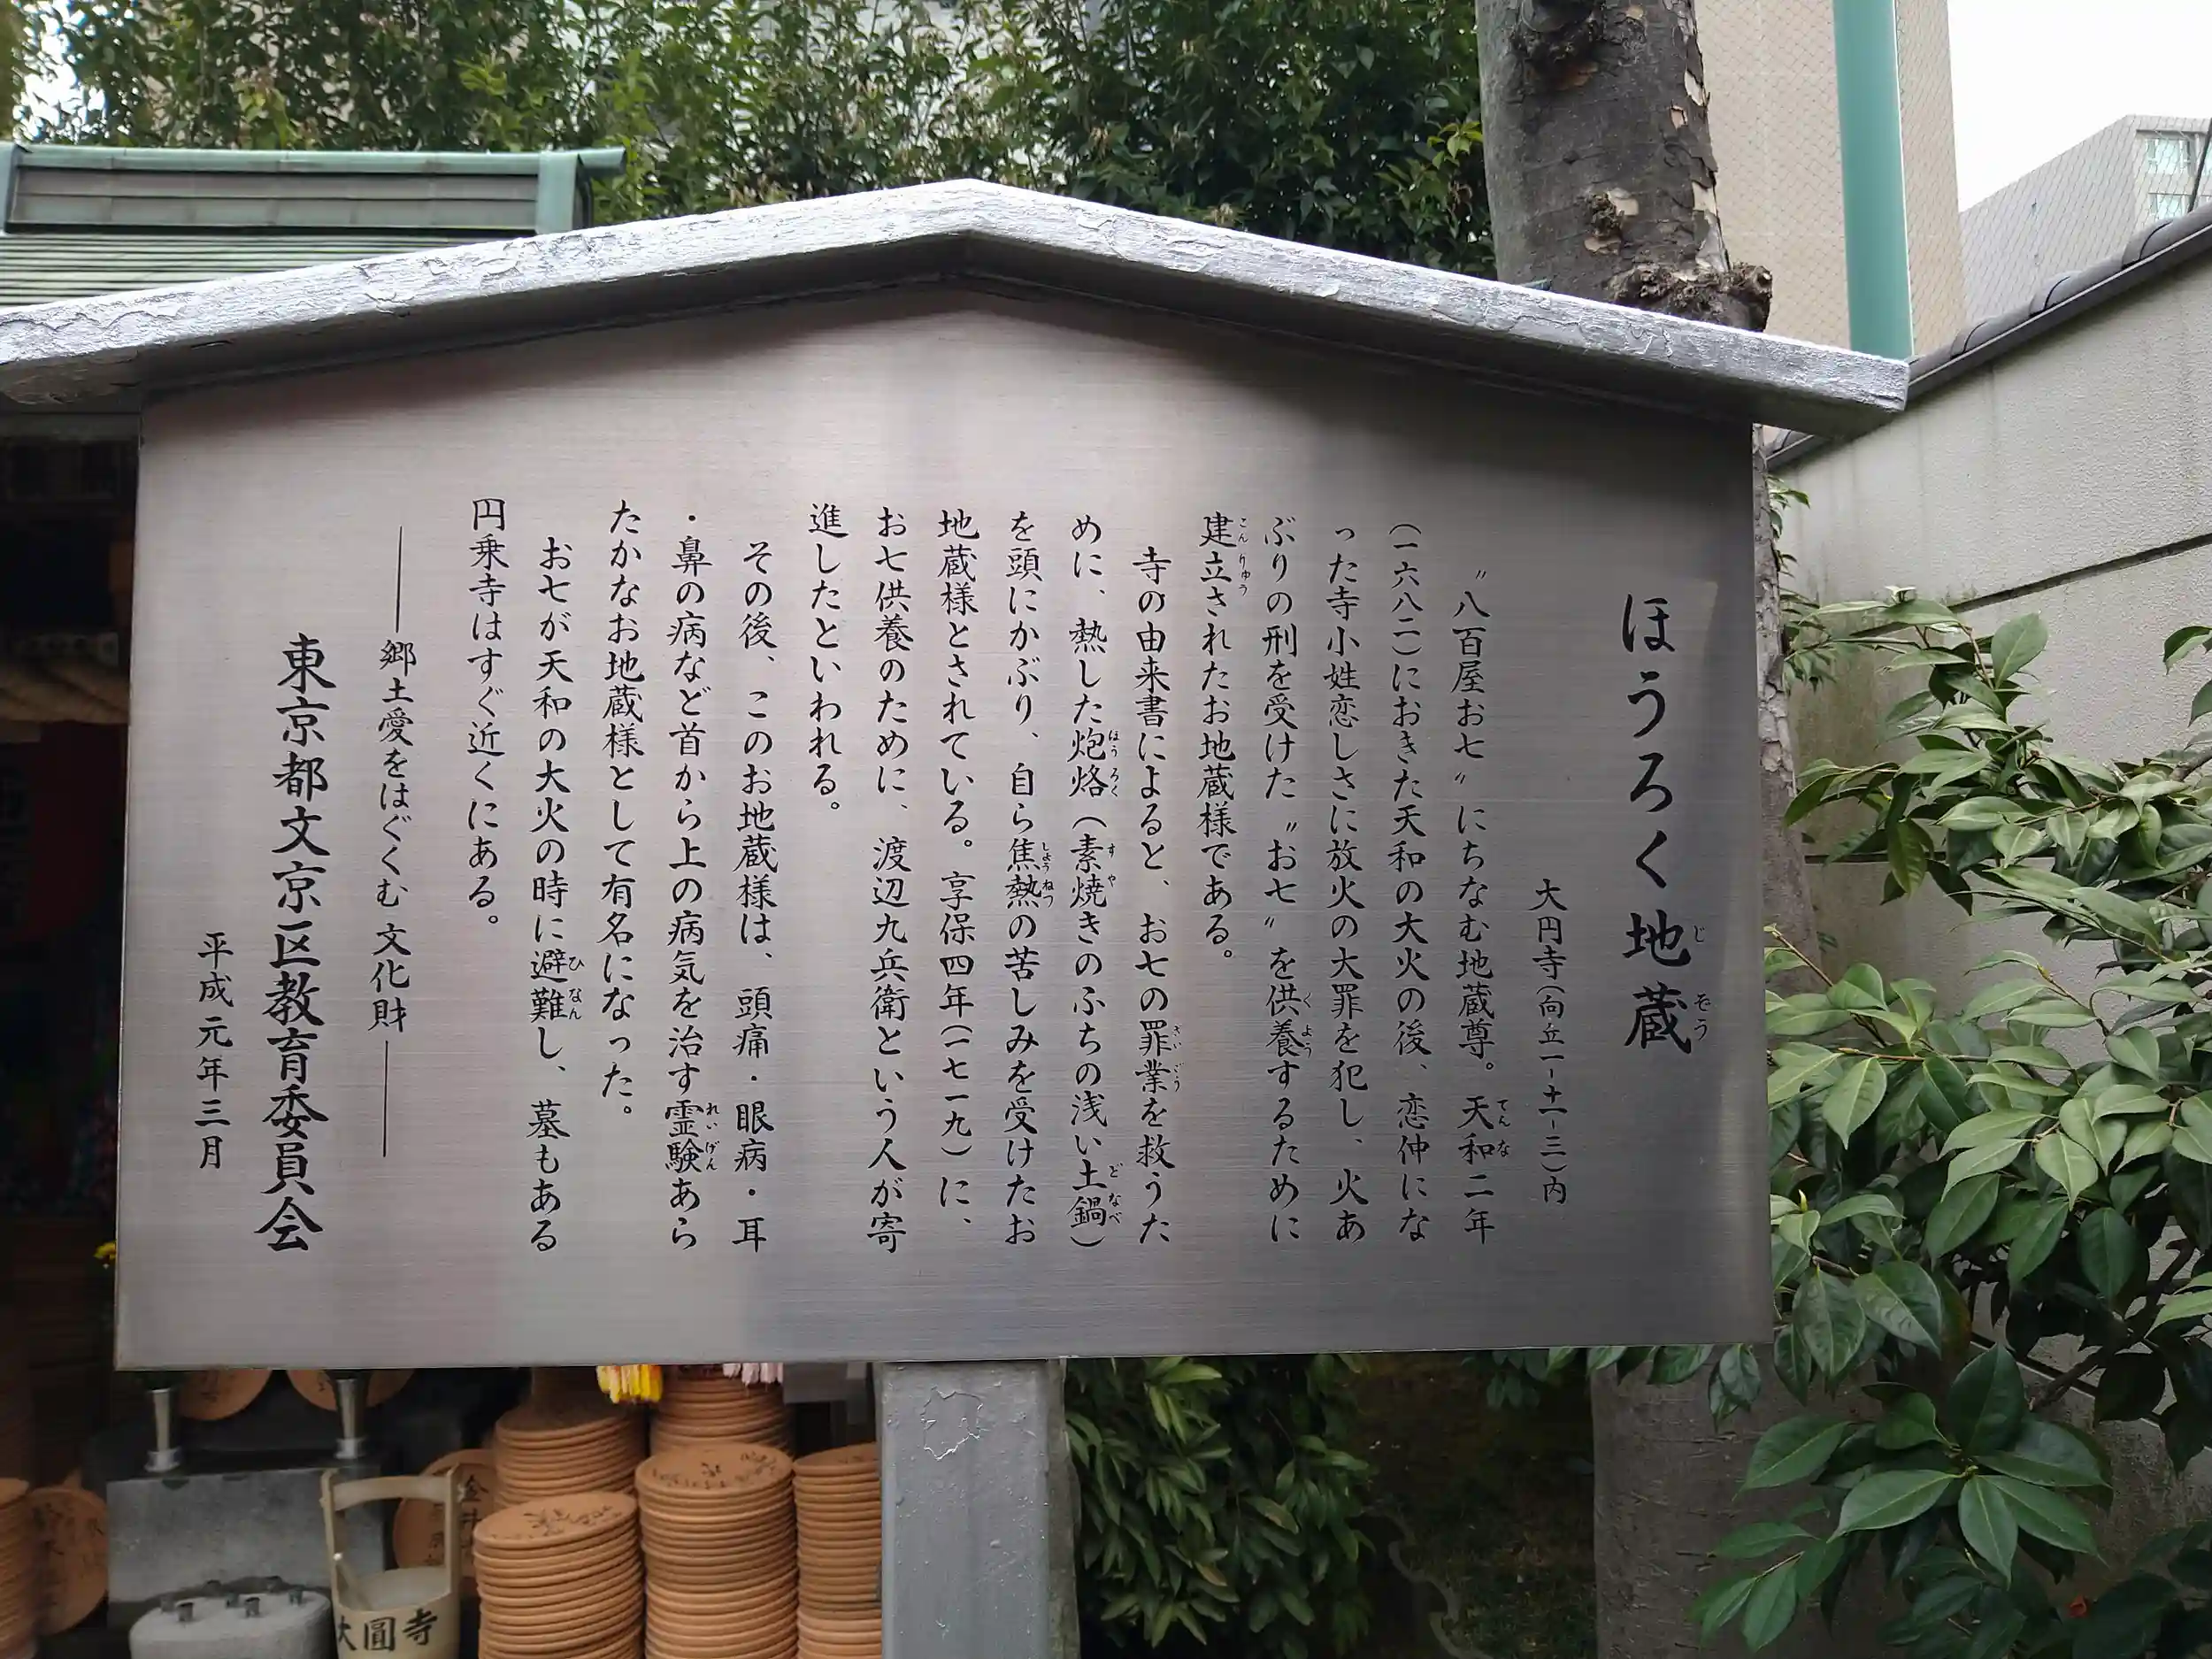 ほうろく地蔵
大円寺(向丘一-十一-三)内
〝八百屋お七〟にちなむ地蔵尊。天和二年
(一六八二)におきた天和の大火の後、恋仲にな
った寺小姓恋しさに放火の大罪を犯し、火あ
ぶりの刑を受けた〝お七〟を供養するために
建立されたお地蔵様である。
寺の由来書によると、お七の罪業を救うた
めに、熱した炮烙(素焼きのふちの浅い土鍋)
を頭にかぶり、自ら焦熱の苦しみを受けたお
地蔵様とされている。享保四年(一七一九)に、
お七供養のために、渡辺九兵衛という人が寄
進したといわれる。
その後、このお地蔵様は、頭痛・眼病・耳
・鼻の病など首から上の病気を治す霊験あら
たかなお地蔵様として有名になった。
お七が天和の大火の時に避難し、墓もある
円乗寺はすぐ近くにある。
――郷土愛をはぐくむ文化財――
東京都文京区教育委員会
平成元年三月
大圓寺